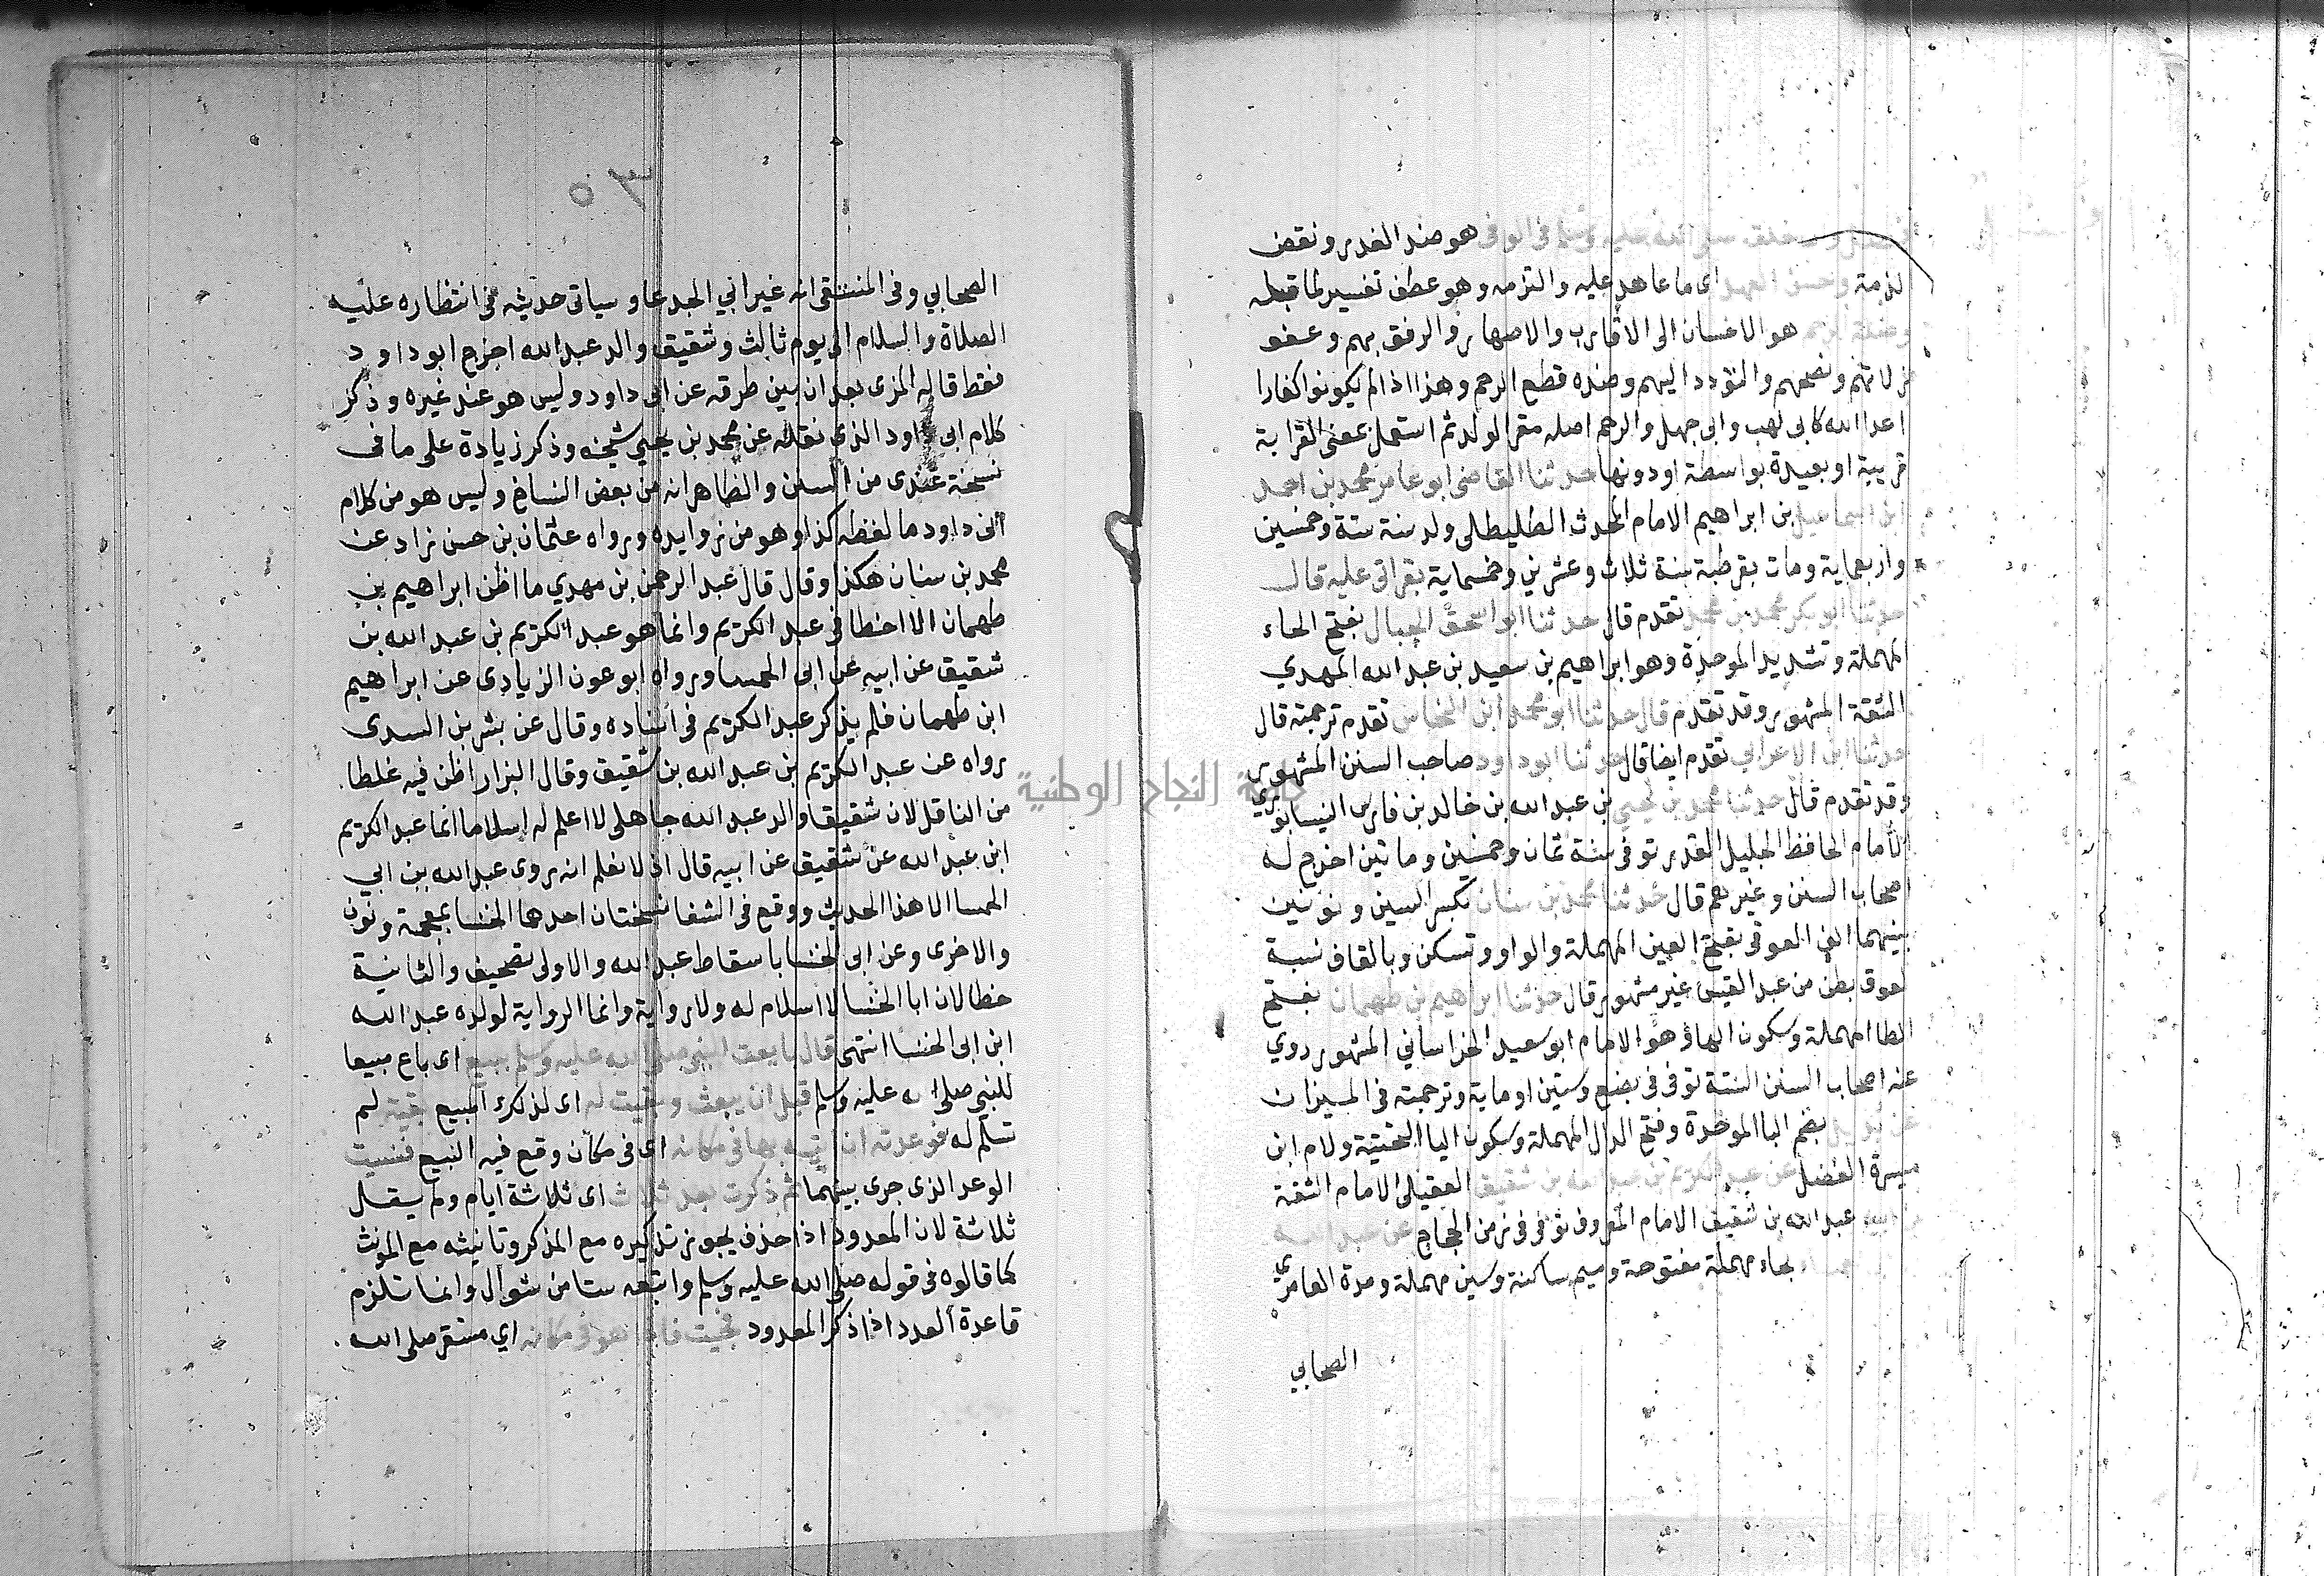 خلقه صلى الله عليه وسلم فى الوفى هو ضد الغدر ونقض
لذمة وحسن العهد اى ما عاهد عليه والتزمه وهو عطف تفسير لما قبله
وصلة الرحم هو الاحسان الى الاقارب والاصهار والرفق بهم وعفو
زلاتهم ونصحهم والتودد اليهم وضده قطع الرحم وهذا اذا لم يكونوا كفارا
اعدا الله كابى لهب وابى جهل والرحم اصله مقر الولد ثم استعمل بمعنى القرابة
قريبة او بعيدة بواسطة او دونها حدثنا القاضى ابو عامر محمد بن احمد
ابن اسماعيل بن ابراهيم الامام المحدث الطليطلى ولد سنة ستة وخمسين
واربعماية ومات بقرطبة سنة ثلاث وعشرين وخمسماية بقراتى عليه قال
حدثنا ابو بكر محمد بن محمد تقدم قال حدثنا ابو اسحق الحبال بفتح الحاء
المهملة وتشديد الموحدة وهو ابراهيم بن سعيد بن عبد الله المهدي
الثقة المشهور وقد تقدم قال حدثنا ابو محمد ابن النحاس تقدم ترجمته قال
حدثنا ابن الاعرابي تقدم ايضا قال حدثنا ابو داود صاحب السنن المشهور
وقد تقدم قال حدثنا محمد بن يحيى بن عبد الله بن خالد بن فارس النيسابوري
الامام الحافظ الجليل القدر توفى سنة ثمان وخمسين وماتين اخرج له
اصحاب السنن وغيرهم قال حدثنا محمد بن سنان بكسر السين ونونين
بينهما الف العوقى بفتح العين المهملة والواو وتسكن وبالقاف نسبة
لعوق بطن من عبد القيس غير مشهور قال حدثنا ابراهيم بن طهمان بفتح
الطا المهملة وسكون الهاؤ هو الامام ابو سعيد الخراساني المشهور روي
عنه اصحاب السنن الستة توفى فى بضع وستين او ماية وترجمته فى الميزان
عن بديل بضم البا الموحدة وفتح الدال المهملة وسكون اليا التحتية ولام ابن
ميسرة الفضل عن عبد الكريم بن عبد الله بن شقيق العقيلى الامام الثقة
عن ابيه عبد الله بن شقيق الامام المعروف توفى فى زمن الحجاج عن عبد الله
بحاء مهملة مفتوحة وميم ساكنة وسين مهملة ومدة العامري
الصحابي
٥٣
الصحابي وفى المنتقى انه غير ابي الجدعا وسياتى حديثه فى انتظاره عليه
الصلاة والسلام الى يوم ثالث وشقيق والد عبد الله اخرج ابو داود
فقط قاله المزى بعد ان بين طرقه عن ابى داود وليس هو عند غيره وذكر
كلام ابى داود الذى نقله عن محمد بن يحيى شيخه وذكر زيادة على ما فى
نسخة عندى من السنن والظاهر انه من بعض النساخ وليس هو من كلام
ابى داود ما لفظه كذا وهو من زوايده ورواه عثمان بن حسن نراد عن
محمد بن سنان هكذا وقال قال عبد الرحمن بن مهدي ما اظن ابراهيم بن
طهمان الا اخطا فى عبد الكريم وانما هو عبد الكريم بن عبد الله بن
شقيق عن ابيه عن ابى الحمسا ورواه ابو عون الزيادى عن ابراهيم
ابن طهمان فلم يذكر عبد الكريم فى اسناده وقال عن بشر بن السدى
رواه عن عبد الكريم بن عبد الله بن شقيق وقال البزار اظن فيه غلطا
من الناقل لان شقيقا والد عبد الله جاهلى لا اعلم له اسلاما انما عبد الكريم
ابن عبد الله عن شقيق عن ابيه قال اى لا نعلم انه روى عبد الله بن ابي
الحمسا الا هذا الحديث ووقع فى الشفا نسختان احدها الخنسا بمعجمة ونون
والاخرى وعن ابى الخنسا باسقاط عبد الله والاولى تصحيف والثانية
خطا لان ابا الخنسا لا اسلام له ولا رواية وانما الرواية لولده عبد الله
ابن ابى الخنسا انتهى قال بايعت النبى صلى الله عليه وسلم ببيع اى باع مبيعا
للنبي صلى الله عليه وسلم قبل ان يبعث وبقيت له اى لذلك المبيع بقية لم
تسلم له فوعدته ان اتيه بها فى مكانه اى فى مكان وقع فيه البيع فنسيت
الوعد الذى جرى بينهما ثم ذكرت بعد ثلاث اى ثلاثة ايام ولم يقل
ثلاثة لان المعدود اذا حذف يجوز تذكيره مع المذكر وتانيثه مع المونث
كما قالوه فى قوله صلى الله عليه وسلم واتبعه ستا من شوال وانما تلزم
قاعدة العدد اذا ذكر المعدود فجيت فاذا هو فى مكانه اي مستقر صلى الله
جامعة النجاح الوطنية